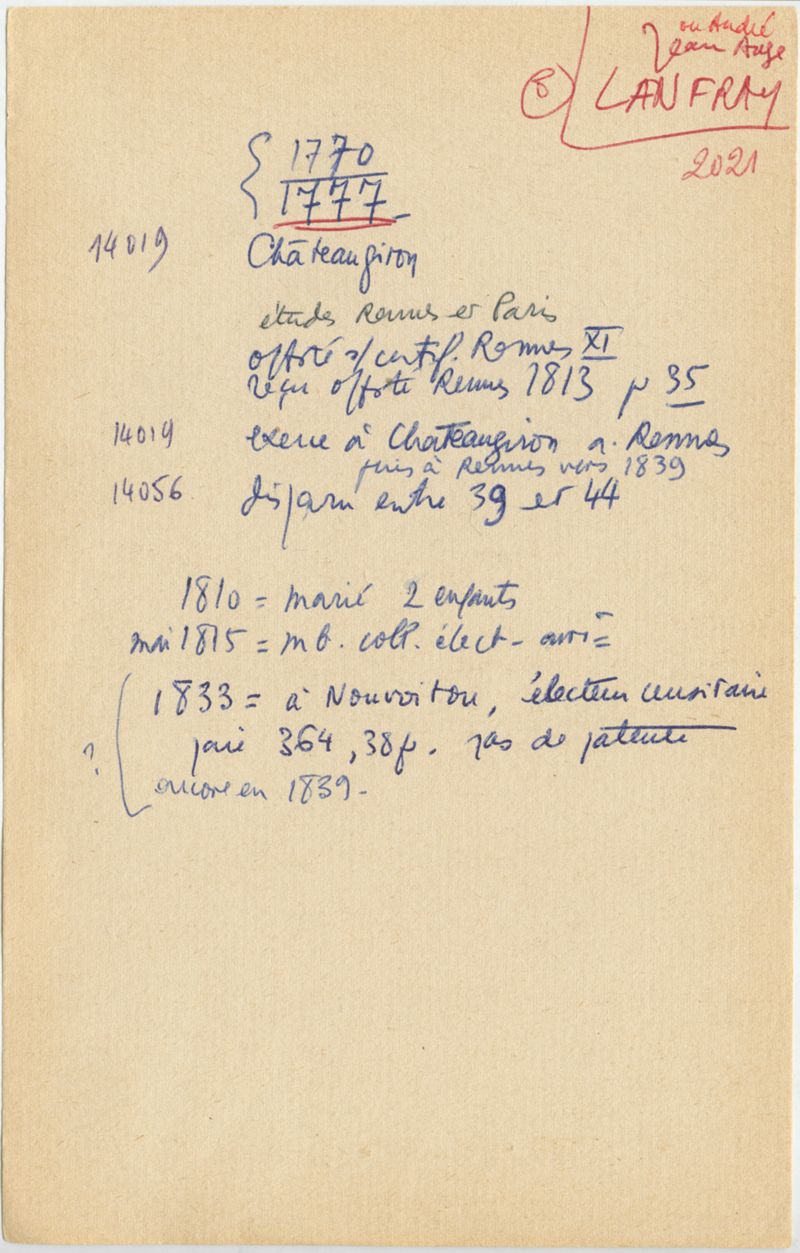 ou André
Jean Ange
(8) LANFRAY
2021
1770
1777
14019 Châteaugiron
études Rennes et Paris
offité s/certif. Rennes XI
reçu offité Rennes 1813 p 35
14019 exerce à Chateaugiron a. Rennes
puis à Rennes vers 1839
14056 disparu entre 39 et 44
1810 = marié 2 enfants
mai 1815 = mb. coll. élect-
1833 = à Nouvoitou, électeur censitaire
? paie 364,38 f. pas de patente
encore en 1839-